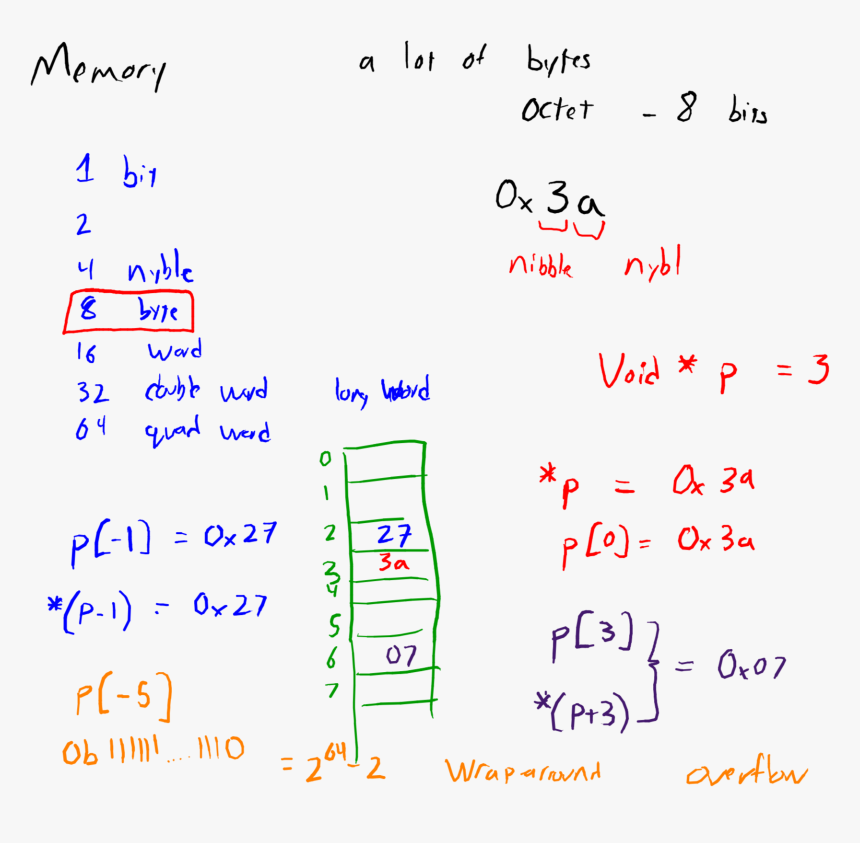 Memory
a lot of bytes
octet - 8 bits
1 bit
2
4 nyble
8 byte
16 word
32 double word long word
64 quad word
0x 3a
nibble nybl
Void * p = 3
*p = 0x 3a
p[0] = 0x 3a
p[3]
*(p+3)
= 0x07
0
1
2 27
3 3a
4
5
6 07
7
p[-1] = 0x27
*(p-1) = 0x27
p[-5]
0b 111111....1110 = 2^64 - 2 Wraparound overflow